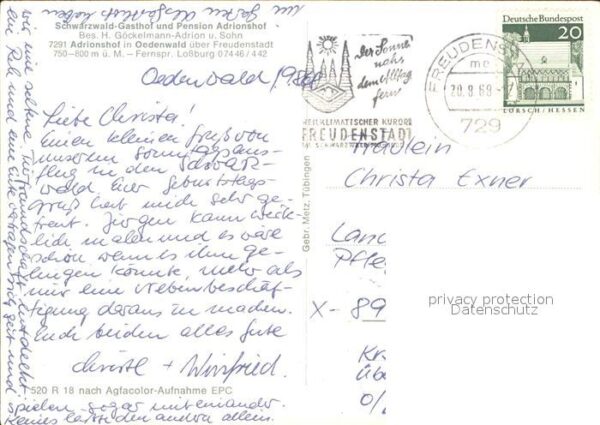 Schwarzwald-Gasthof und Pension Adrionshof
Bes. H. Göckelmann-Adrion u. Sohn
7291 Adrionshof in Oedenwald über Freudenstadt
750–800 m ü. M. – Fernspr. Loßburg 07446/442
Oedenwald, 19.
Liebe Christa!
Einen kleinen Gruß von
unserem Sonntagsaus-
flug in den Schwarz-
wald. Euer Geburtstags-
gruß hat mich sehr ge-
freut. Jürgen kann wirk-
lich malen und es wäre
schön wenn es ihm ge-
lingen könnte, mehr als
nur eine Nebenbeschäf-
tigung daraus zu machen.
Euch beiden alles Gute
Christl + Winfried.
520 R 18 nach Agfacolor-Aufnahme EPC
wir eine seltene Tierfreundschaft entdeckt.
ein Reh und eine vertragen sich gut und
spielen sogar miteinander.
Keines läßt den andern allein.
Gebr. Metz, Tübingen
Der Sonne
nahs
dem Alltag
fern
HEILKLIMATISCHER KURORT
FREUDENSTADT
IM SCHWARZWALD
FREUDENSTADT
20.9.69
729
Deutsche Bundespost
20
LORSCH/HESSEN
Fräulein
Christa Exner
Lan
Pfle
X-89
Kr
üb
O/
privacy protection
Datenschutz